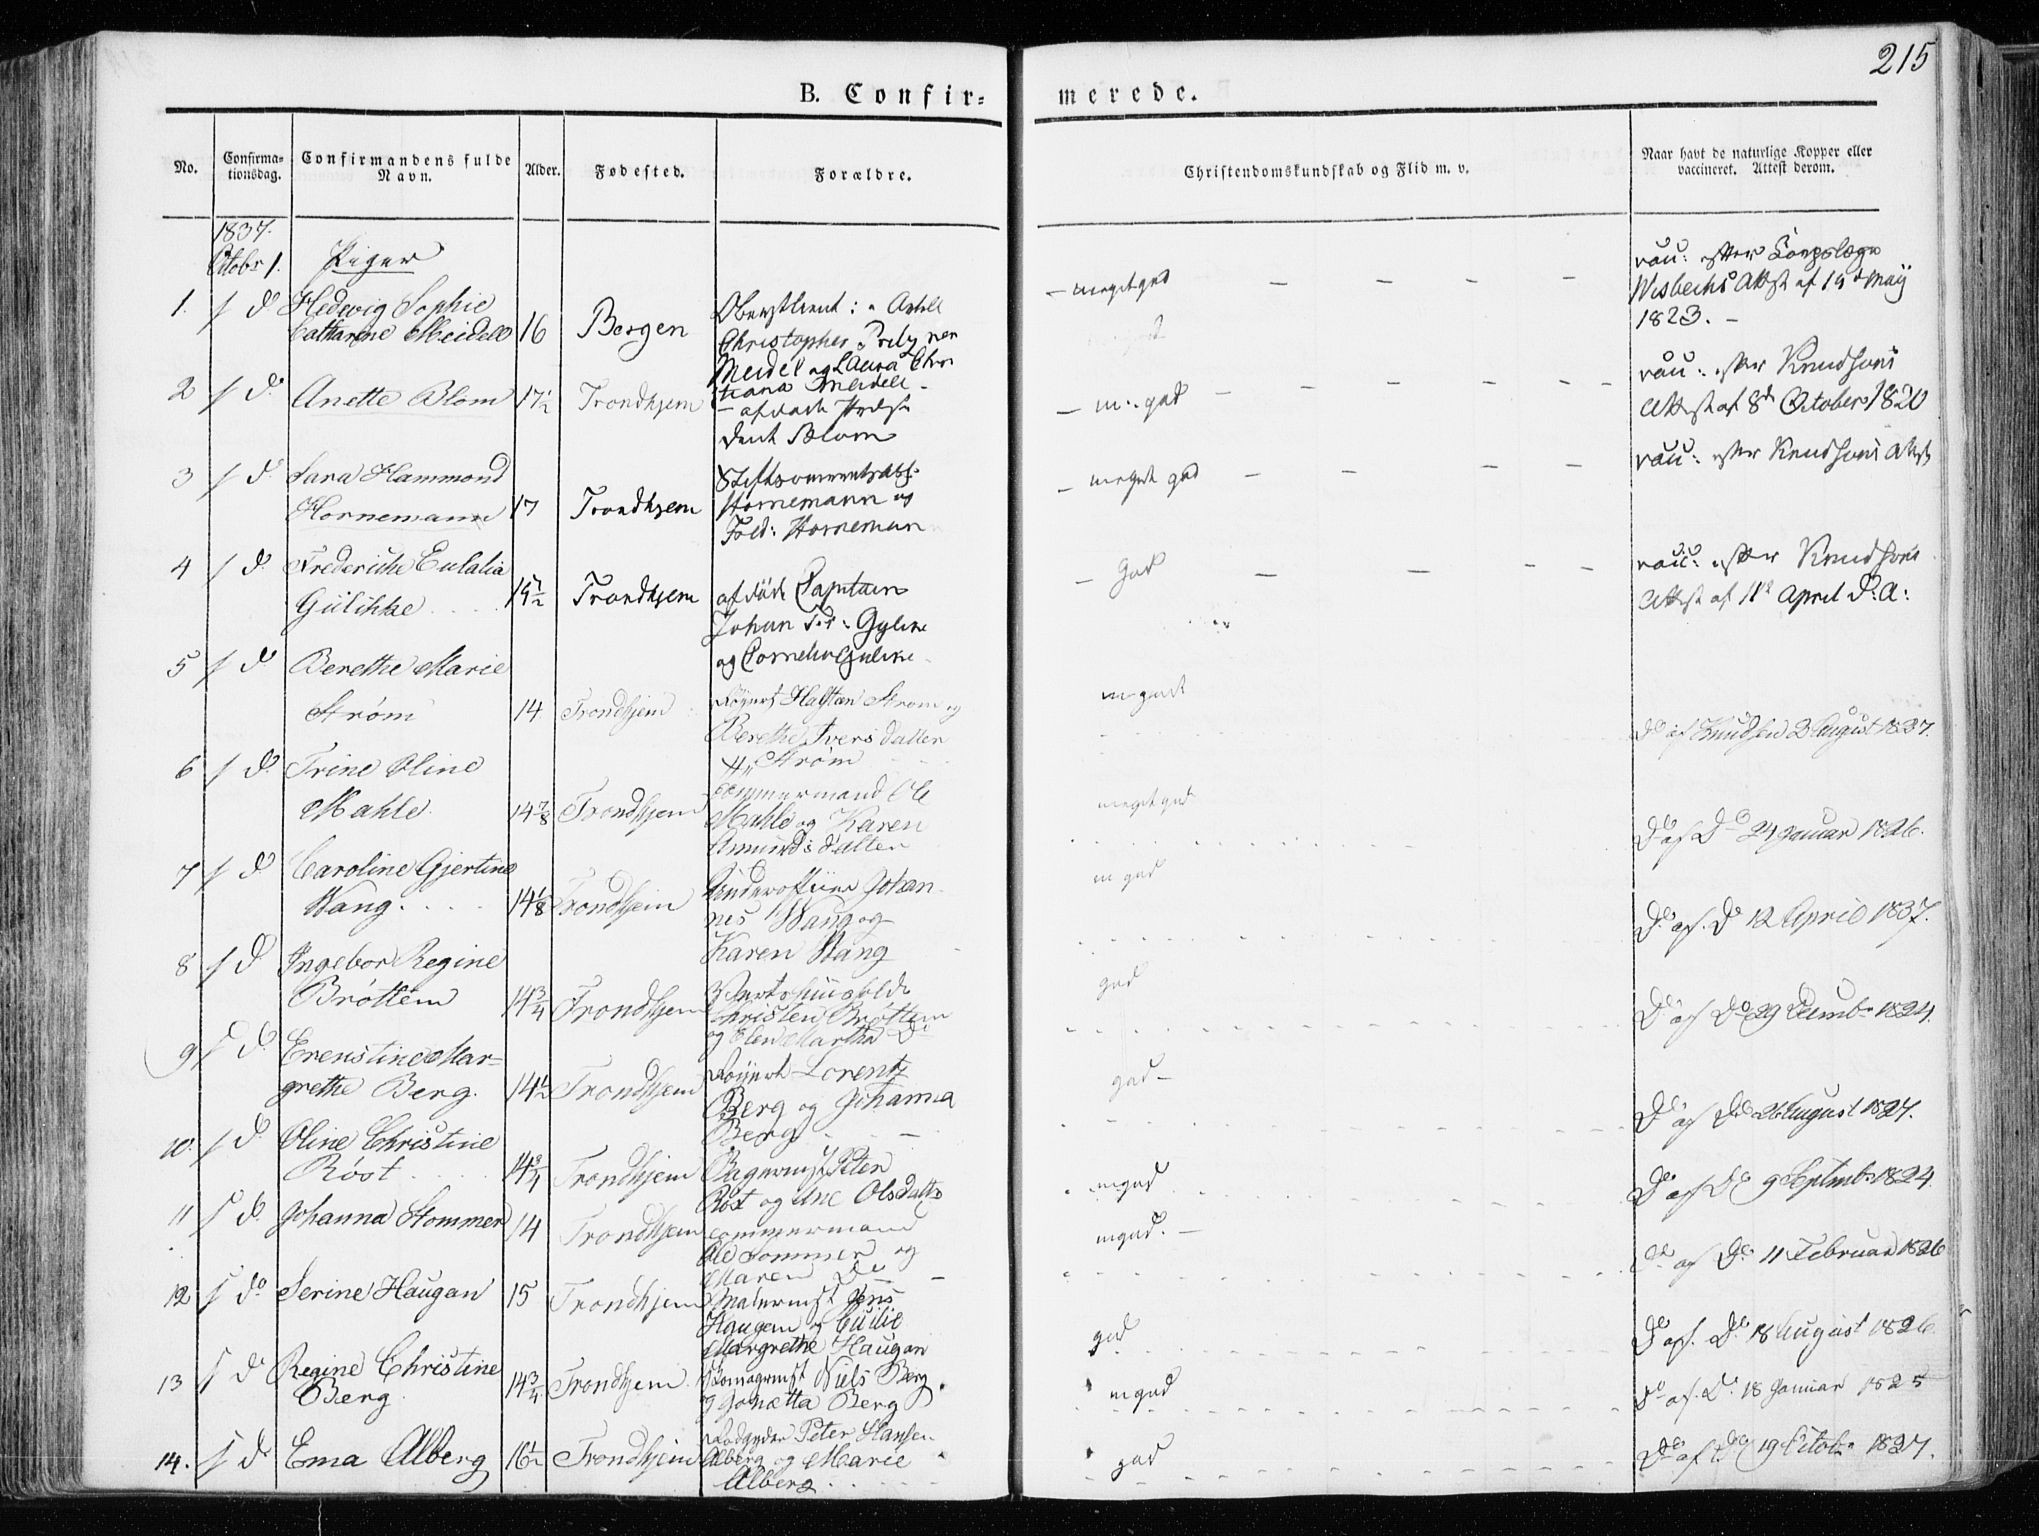 215
B. Confir=
merede.
No.
Confirma-
tionsdag.
Confirmandens fulde
Navn.
Alder.
Fødested.
Forældre.
Christendomskundskab og Flid m. v.
Naar havt de naturlige Kopper eller
vaccineret. Attest derom.
1837.
Octobr 1. Piger
1. / d Hedevig Sophie
Catharine Meidell 16 Bergen
Christopher
Meidel og Laura
tiana Meidell
meget god
Wisbechs Attst af 19 May
1823.
2 / d. Anette Blom 17½ Trondhjem
afdøde Præsi
dent Blom
m. god
Knudsons
Attst af 8de October 1820
3 / d. Sara Hammond
Hornemann 17 Trondhjem
Hornemann og
Hornemann
meget god
vacc: efter Knudsons Attst
4 / d. Frederiche Eulalia
Gülikke 15½ Trondhjem
afdøde Captain
Johan Gylike
og Gulike
God
vacc: efter Knudsons
Attst af 11te April d: A:
5 / d Berethe Marie
Strøm 14 Trondhjem
Halstæn Strøm og
Berethe Ivers datter
Strøm
m god
Do af Knudsen 2 August 1837.
6 / d. Trine Oline
Mahle. 14⅞ Trondhjem
Tømmermand Ole
Mahle og Karen
Amunds datter
meget god
Do af Do 24 Januar 1826.
7 / d Caroline Gjertine
Wang. 14⅛ Trondhjem
Underofficer Johan-
nes Wang og
Karen Wang
m god
Do af. Do 12 April 1837.
8 / d Ingebor Regine
Brøttem 14¾ Trondhjem
Christen Brøttem
og Elen Martha Do
god
Do af Do 29 Decembr 1824.
9 / d. Erenstine Mar-
grethe Berg. 14½ Trondhjem
Lorentz
Berg og Johanna
Berg
god
Do af Do 26 August 1827.
10. / d. Oline Christine
Røst 14¾ Trondhjem
Bagermst Peter
Røst og Ane Olsdatter
mgod
Do af Do 9 Septmbr 1824
11 / d. Johanna Stommer 14 Trondhjem
Tømmermand
Ole Sommer og
Maren Do
mgod.
Do af Do 11 Februar 1826
12 / do Serine Haugan 15 Trondhjem
Malermst Jens
Haugan og Cicilie
Margrethe Haugan
god
Do af. Do 18 August 1826.
13 / d Regine Christine
Berg. 14¾ Trondhjem.
Skomagermst Niels Berg
og Jonetta Berg
mgod
Do af. Do 18 Januar 1825
14. / d Ema Alberg 16½ Trondhjem
Peter Hansen
Alberg og Marie
Alberg
god
Do af Do 19 Octobr 1837.